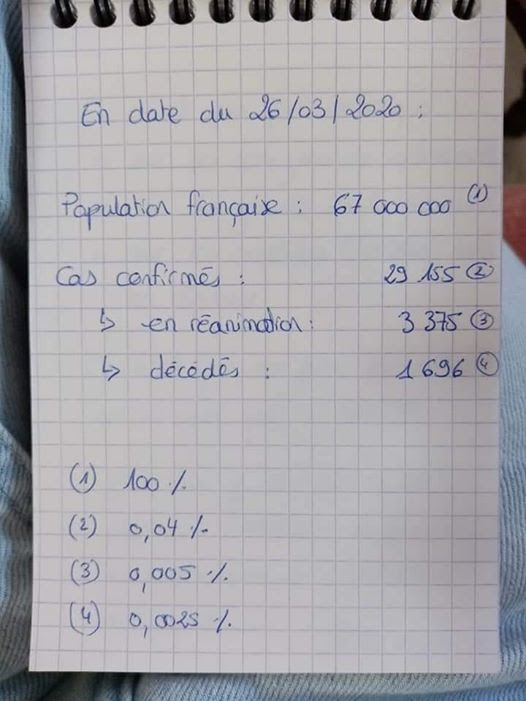 En date du 26/03/2020 :
Population française : 67 000 000 (1)
Cas confirmés : 29 155 (2)
↳ en réanimation : 3 375 (3)
↳ décédés : 1 696 (4)
(1) 100 %
(2) 0,04 %
(3) 0,005 %
(4) 0,0025 %